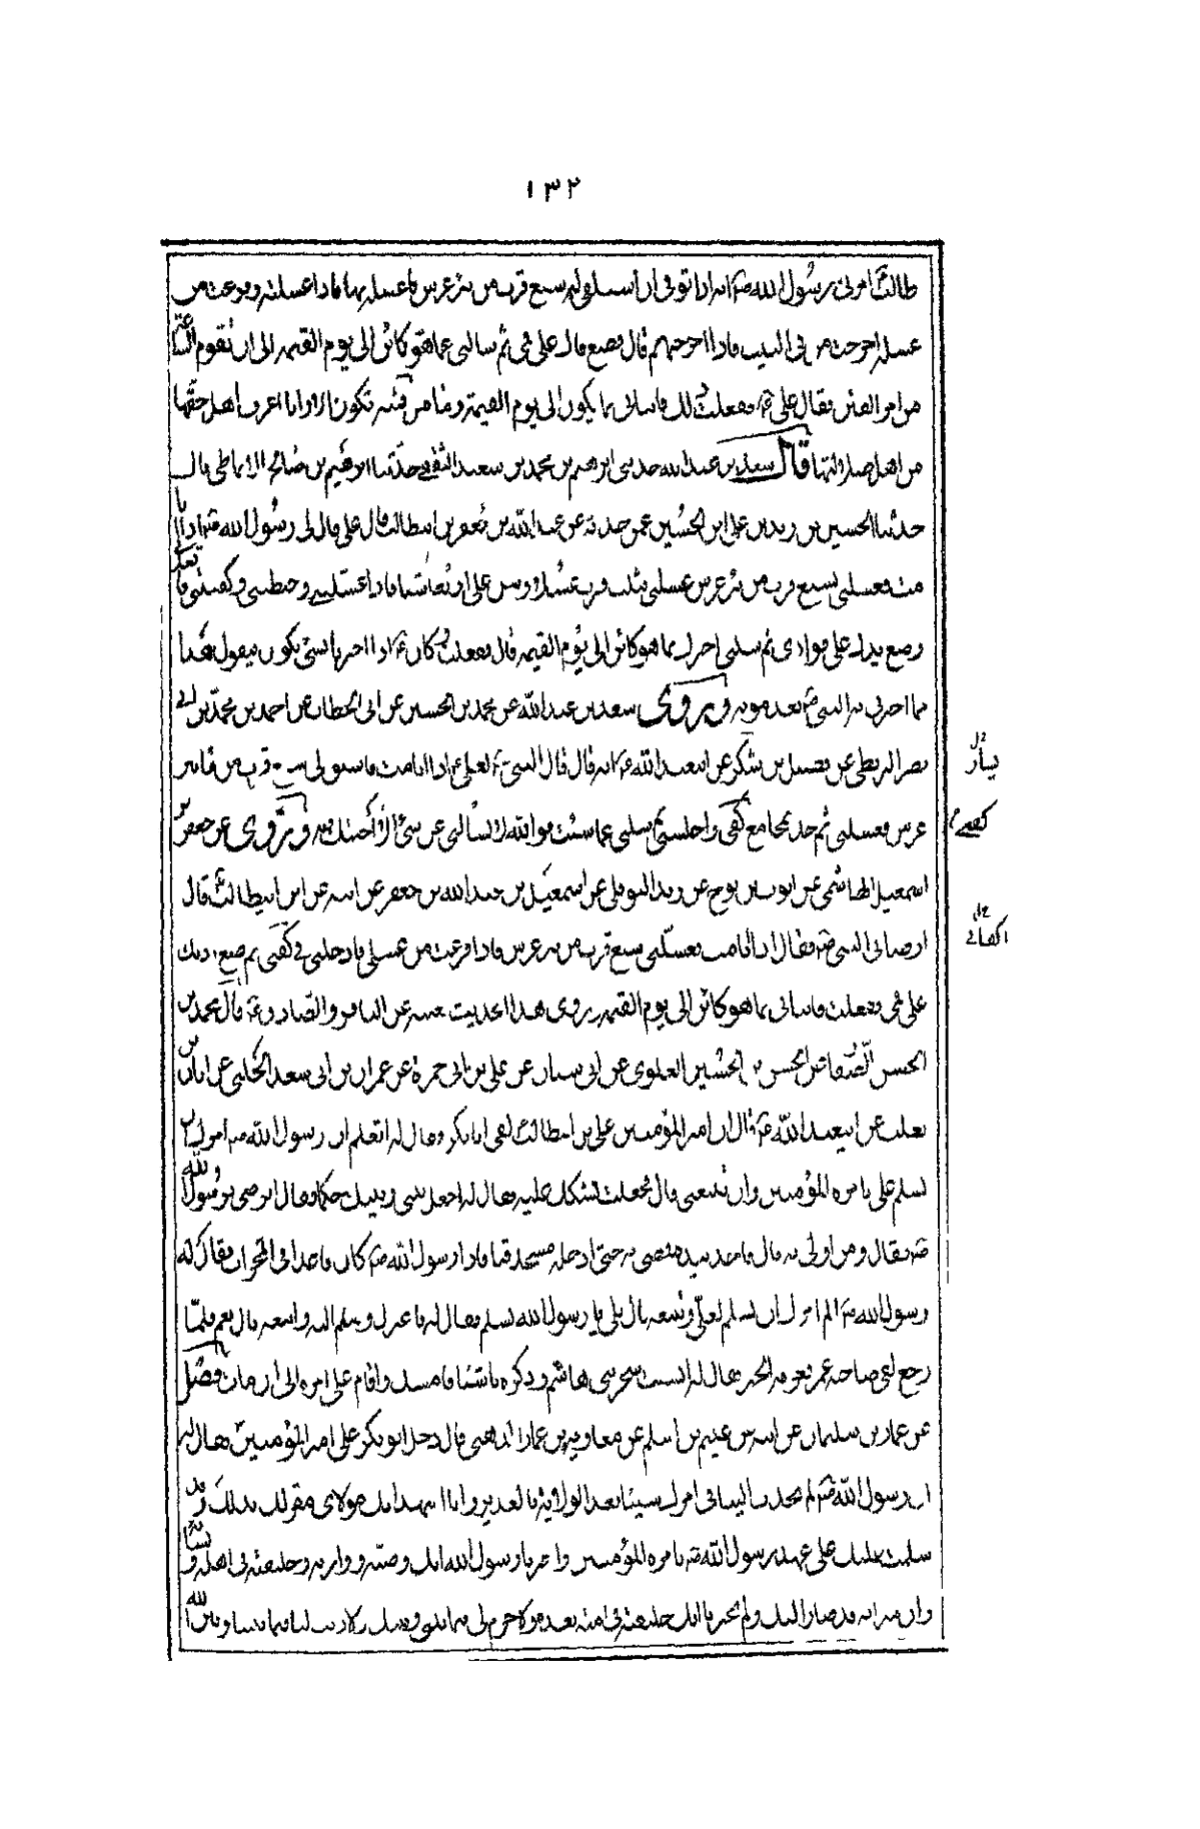 ١٣٢
طالب امرنى رسول الله ص انه اذا توفى ان استسقى له سبع قرب من بئر غرس فاغسله بها فاذا غسلته وفرغت من
غسله اخرجت من فى البيت فاذا اخرجتهم قال فضع فاك على فمى ثم سالنى عما هو كائن الى يوم القيمة الى ان تقوم الساعة
من امر الفتن فقال على ع ففعلت ذلك فانبانى بما يكون الى يوم القيمة وما من فئة تكون الا وانا اعرف اهل حقها
من اهل ضلالتها قال سعد بن عبد الله حدثنى ابرهيم بن محمد بن سعيد الثقفى حدثنا ابرهيم بن صالح الانماطى قال
حدثنا الحسين بن زيد بن على ابن الحسين عمن حدثه عن عبد الله بن جعفر بن ابيطالب قال قال على قال لى رسول الله ص اذا انا
مت فغسلنى بسبع قرب من بئر غرس غسلنى بثلث قرب غسلا وسن على اربعا سنا فاذا غسلتنى وحنطتنى وكفنتنى فاقعدنى
وضع يدك على فوادى ثم سلنى اخبرك بما هو كائن الى يوم القيمة قال ففعلت وكان ع اذا اخبرنا بشئ يكون فيقول هذا
مما اخبرنى به النبى ص بعد موته وروى سعد بن عبد الله عن محمد بن الحسين عن ابى الخطاب عن احمد بن محمد بن ابى
نصر البزنطى عن فضيل بن سكر عن ابيعبد الله ع انه قال قال النبى ص لعلى ع اذا انا مت فاستق لى سبع قرب من ماء بئر
غرس فغسلنى ثم خذ بمجامع كفنى واجلسنى ثم سلنى عما شئت فوالله لا تسالنى عن شئ الا اجبتك فيه وروى عن جعفر بن
اسمعيل الهاشمى عن ايوب بن نوح عن زيد النوفلى عن اسمعيل بن عبد الله بن جعفر عن ابيه عن ابن ابيطالب قال
اوصانى النبى ص فقال اذا انا مت فغسلنى سبع قرب من بئر غرس فاذا فرغت من غسلى فادخلنى فى كفنى ثم ضع اذنك
على فمى ففعلت فانبانى بما هو كائن الى يوم القيمة وروى هذا الحديث بعينه عن الباقر والصادق ع قال محمد بن
الحسن الصفار عن الحسن بن الحسين العلوى عن ابى سنان عن على بن ابى حمزة عن عمران بن ابى سعد الحلبى عن ابان بن
تغلب عن ابيعبد الله ع قال ان امير المؤمنين على بن ابيطالب لقى ابا بكر وقال له اتعلم ان رسول الله ص امرك ان
تسلم على بامرة المؤمنين وان تتبعنى قال فجعلت تشكك عليه فقال له اجعل بينى وبينك حكما فقال اترضى برسول الله
ص فقال ومن اولى به قال فاخذ بيده فمضى به حتى ادخله مسجد قبا فاذا رسول الله ص كان قاعدا فى المحراب فقال له
رسول الله ص الم امرك ان تسلم لعلى وتتبعه قال بلى يا رسول الله تسلم فقال له فاعزل وسلم اليه واتبعه قال نعم فلما
رجع لقى صاحبه عمر فعرفه الخبر فقال له انسيت سحر بنى هاشم وذكره باشياء فامسك واقام على امره الى ان مات فصل
عن عمار بن سليمان عن ابيه عن عيثم بن اسلم عن معاوية بن عمار الدهنى قال دخل ابو بكر على امير المؤمنين فقال له
ان رسول الله ص لم يحدث الينا فى امرك شيئا بعد الولاية بالغدير وانا اشهد انك مولاى مقر لك بذلك وقد
سلمت عليك على عهد رسول الله ص بامرة المؤمنين واخبرنا رسول الله انك وصيه ووارثه وخليفته فى اهله ونسائه
وان ميراثه قد صار اليك ولم يخبرنا انك خليفته فى امته بعده ولا جرم لى فيما بينى وبينك ولا ذنب لنا فيما بيننا وبين الله